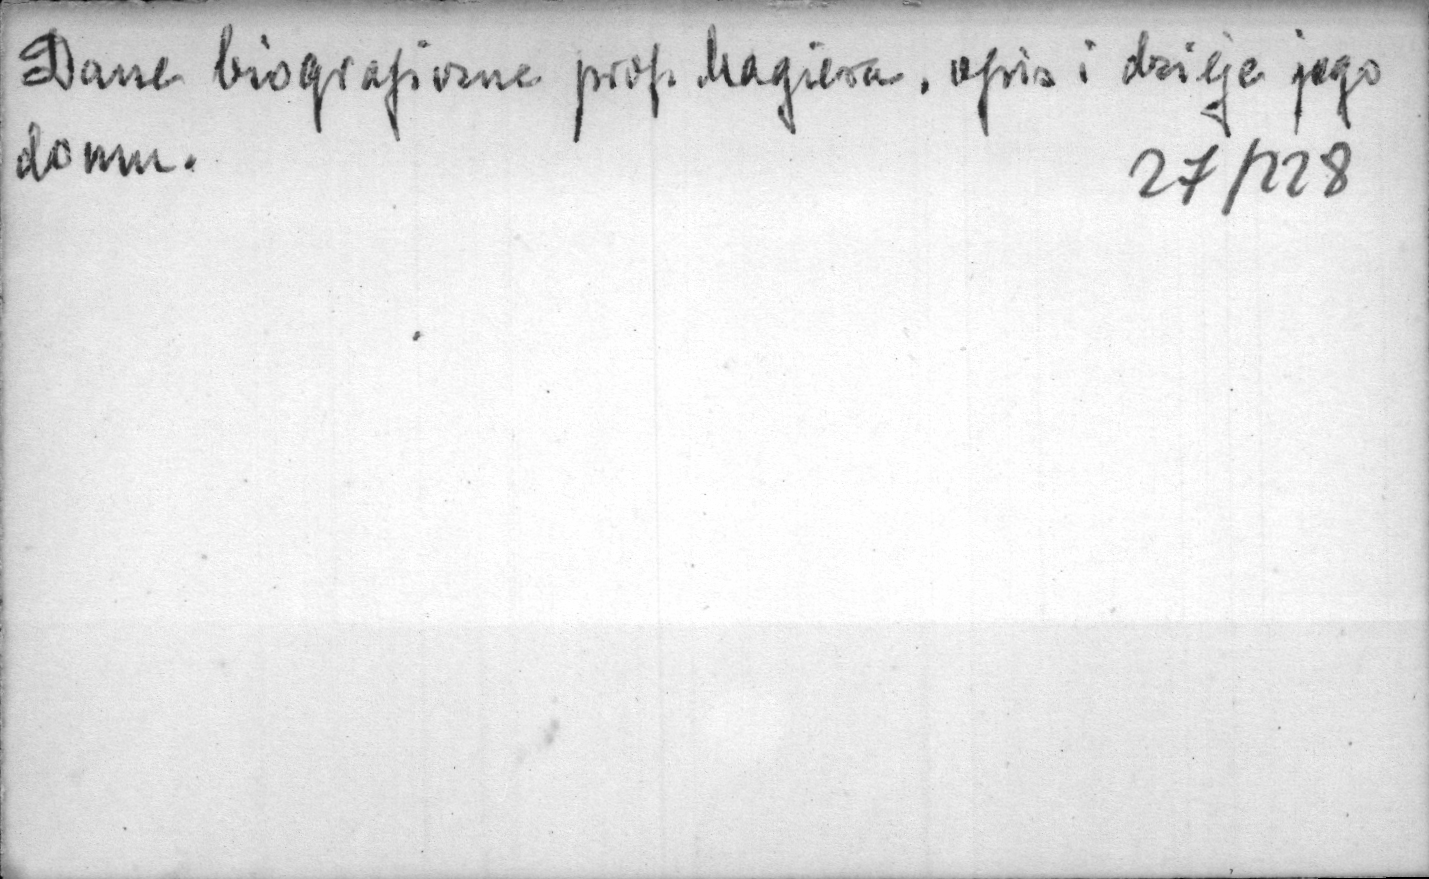 Dane biograficzne prof. Magiera, opis i dzieje jego
domu.
27/228